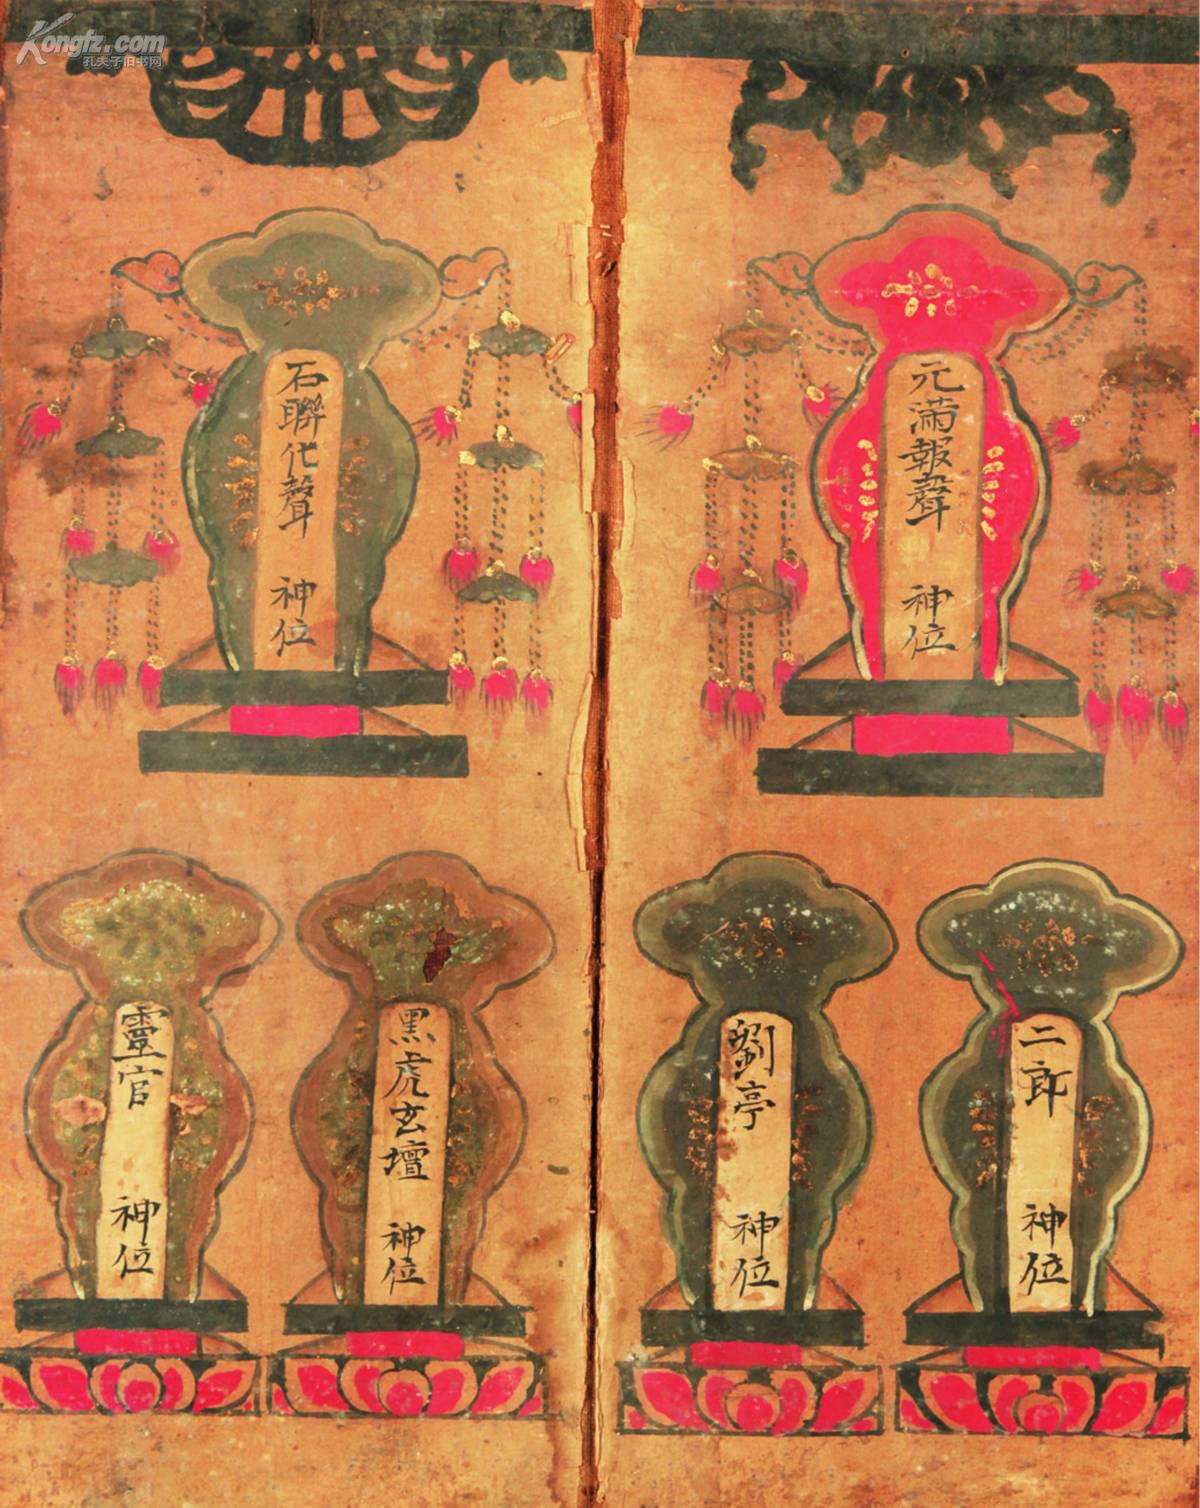 Kongfz.com
孔夫子旧书网
元滿報聲 神位
石聯代聲 神位
二郎 神位
劉亭 神位
黑虎玄壇 神位
靈官 神位